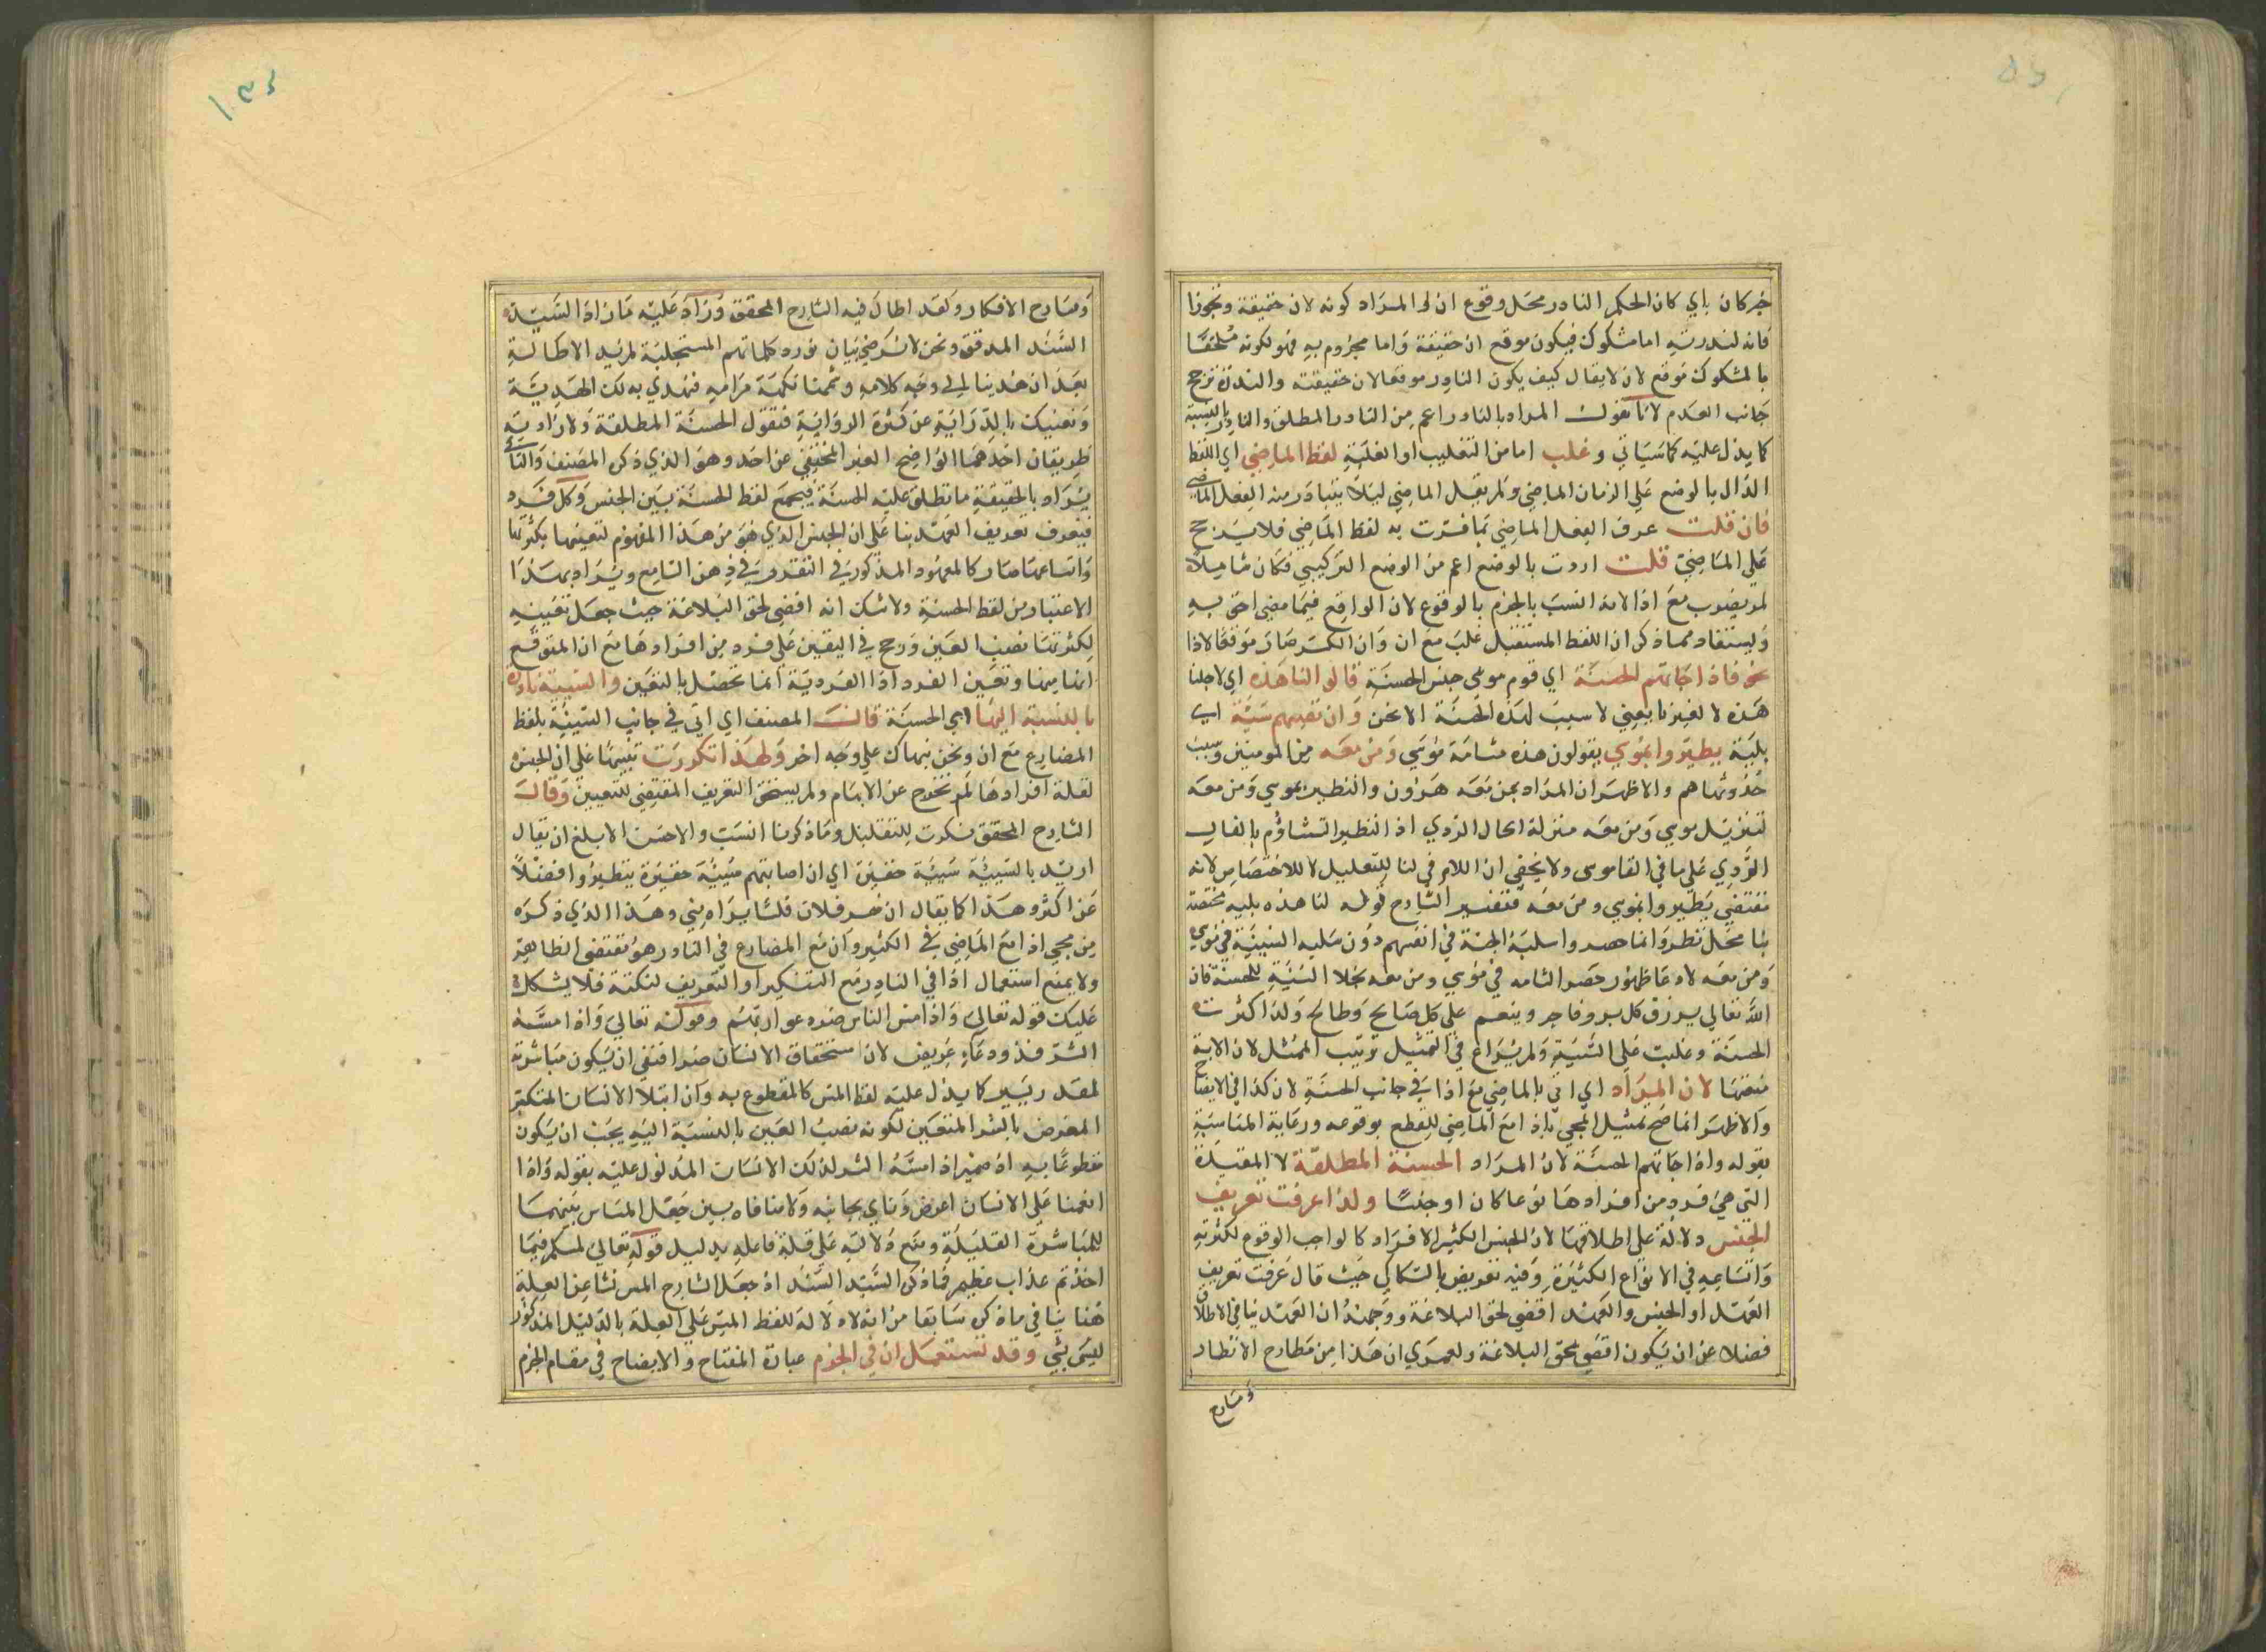 خبر كان باي كان الحكم النادر محل وقوع ان او المراد كونه لان حقيقة وتجوزا
فانه لندرته اما مشكوك فيكون موقع ان حقيقة واما مجزوم به فهو لكونه ملحقا
بالمشكوك موقع لان لا يقال كيف يكون النادر موقعا لان حقيقته والندرة ترجح
جانب العدم لانا نقول المراد بالنادر اعم من النادر المطلق والنادر بالنسبة
كما يدل عليه كما سياتي وغلب اما من التغليب او الغلبة لفظ الماضي اي اللفظ
الدال بالوضع على الزمان الماضي ولم يقل الماضي ليلا يتبادر منه الفعل الماضي
فان قلت عرف الفعل الماضي بما فسرت به لفظ الماضي فلا يرجح
على الماضي قلت اردت بالوضع اعم من الوضع التركيبي فكان شاملا
لم يضرب مع اذا لانه انسب بالجزم بالوقوع لان الواقع فيما مضى احق به
ويستفاد مما ذكر ان اللفظ المستقبل غلب مع ان وان الكسر صار موقعا لاذا
نحو فاذا جاءتهم الحسنة اي قوم موسى جنس الحسنة قالوا لنا هذه اي لاجلنا
هذه لا لغيرنا يعني لا سبب لهذه الحسنة الا نحن وان تصبهم سيئة اي
بلية يطيروا بموسى يقولون هذه مشامة موسي ومن معه من المومنين وسبب
حدوثها هم والاظهر ان المراد بمن معه هرون والتطير بموسي ومن معه
لتنزيل موسي ومن معه منزلة الحال الردي اذ التطير التشاؤم بالفال
الردي على ما في القاموس ولا يخفى ان اللام في لنا للتعليل لا للاختصاص لانه
مقتضى يطيروا بموسي ومن معه فتفسير الشارح قوله لنا هذه بليه مختصة
بنا محل نظر وانما حصروا سلبة الجنة في انفسهم دون سلبه السيئة في موسي
ومن معه لادعا ظهور حصر الشامه في موسي ومن معه بخلا السيئة للحسنة فان
الله تعالى يرزق كل بر وفاجر وينعم على كل صالح وطالح ولذا كثرت
الحسنة وغلبت على السيئة ولم يراع في التمثيل ترتيب الممثل لان الاية
متضمنها لان المراد اي اتي بالماضي مع اذا في جانب الحسنة لان كذا في الايضاح
والاظهر انما صح تمثيل المجي باذا مع الماضي للقطع بوقوعه ورعاية المناسبة
بقوله واذا جاتهم الحسنة لان المراد الحسنة المطلقة لا المقيدة
التي هي فرد من افرادها نوعا كان او جنسا ولذا عرفت تعريف
الجنس دلالة على اطلاقها لان الجنس الكثير الافراد كالواجب الوقوع لكثرته
واتساعه في الانواع الكثيرة وفيه تعريض بالسكاكي حيث قال عرفت تعريف
العهد او الجنس والعهد اقضى لحق البلاغة ووجهه ان العهد ينافي الاطلاق
فضلا عن ان يكون اقضى لحق البلاغة ولعمري ان هذا من مطارح الانظار
ومسارح
ومسارح الافكار ولقد اطال فيه الشارح المحقق وزاد عليه ما زاد السيد
السند المدقق ونحن لا نرضى بان نورد كلماتهم المستجلبة لمزيد الاطالة
بعد ان هدينا الى وجه كلامه وتممنا نكهة مرامه فنهدي به لك الهدية
ونغنيك بالدراية عن كثرة الرواية فنقول الحسنة المطلقة ولارادته
طريقان احدهما الواضح الغير المختفي عن احد وهو الذي ذكره المصنف والثاني
يراد بالحقيقة ما تطلق عليه الحسنة فيجمع لفظ الحسنة بين الجنس وكل فرد
فيعرف تعريف العهد بنا على ان الجنس الذي هو من هذا المفهوم لتعينها بكثرتها
واتساعها صار كالمعهود المذكور في التقدير في ذهن السامع ويراد بهذا
الاعتبار من لفظ الحسنة ولا شك انه اقضى لحق البلاغة حيث جعل تعينه
لكثرتها نصب العين ورجح في اليقين على فرد من افرادها مع ان المتوقع
انها منها وتعين الفرد اذا الفردية انما تحصل بالتعين والسيئة نادرة
بالنسبة اليها اي الحسنة قالت المصنف اي اتى في جانب السيئة بلفظ
المضارع مع ان ونحن نبهاك على وجه اخر ولهذا نكرت تنبيها على ان الجنس
لقلة افرادها لم تخرج عن الابهام ولم يستحق التعريف المقتضي للتعيين وقال
الشارح المحقق نكرت للتقليل وما ذكرنا انسب والاحسن الابلغ ان يقال
اريد بالسيئة سيئة حقيرة اي ان اصابتهم سيئة حقيرة يتطيروا فضلا
عن اكثر وهذا كما يقال ان ضر فلان فلسا يراه مني وهذا الذي ذكره
من مجي اذا مع الماضي في الكثير وان مع المضارع في النادر هو مقتضى الظاهر
ولا يمنع استعمال اذا في النادر مع التنكير او التعريف لنكتة فلا يشكل
عليك قوله تعالى واذا مس الناس ضر دعوا ربهم وقوله تعالى واذا مسه
الشر فذو دعاء عريض لان استحقاق الانسان ضرا اقتضى ان يكون مباشرته
لقدر يسير كما يدل عليه لفظ المس كالمقطوع به وان ابتلا الانسان المتكبر
المعرض بالشر المتعين لكونه نصب العين بالنسبة اليه يجب ان يكون
مقطوعا به اذ ضمير اذا مسه الشر لذلك الانسان المدلول عليه بقوله واذا
انعمنا على الانسان اعرض وناي بجانبه ولا منافاه بين جعل المساس بينهما
للمباشرة القليلة ومنع دلالته على قلة فاعله بدليل قوله تعالى لمسكم فيما
اخذتم عذاب عظيم فما ذكر السيد السند اذ جعل الشارح المس نشا عن العلة
هنا ينافي ما ذكره سابقا من انه لا دلالة للفظ المس على العلة بالدليل المذكور
ليس بشي وقد تستعمل ان في الجزم عبارة المفتاح والايضاح في مقام الجزم